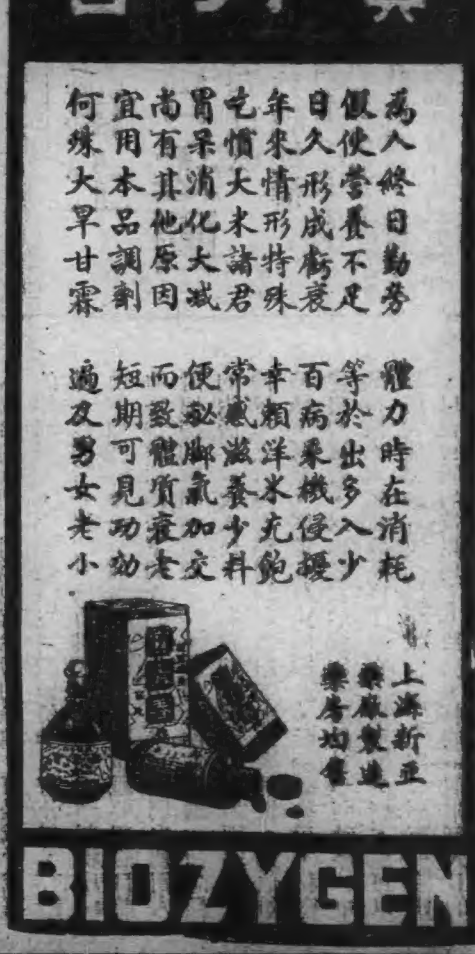 為人終日勤勞 體力時在消耗
假使營養不足 等於出多入少
日久形成虧衰 百病乘機侵擾
年來情形特殊 幸賴洋米充飽
吃慣大米諸君 常感滋養少料
胃呆消化大減 便秘脚氣加交
尚有其他原因 而致體質衰老
宜用本品調劑 短期可見功効
何殊大旱甘霖 遍及男女老小
上海新亞
藥廠製造
藥房均售
BIOZYGEN